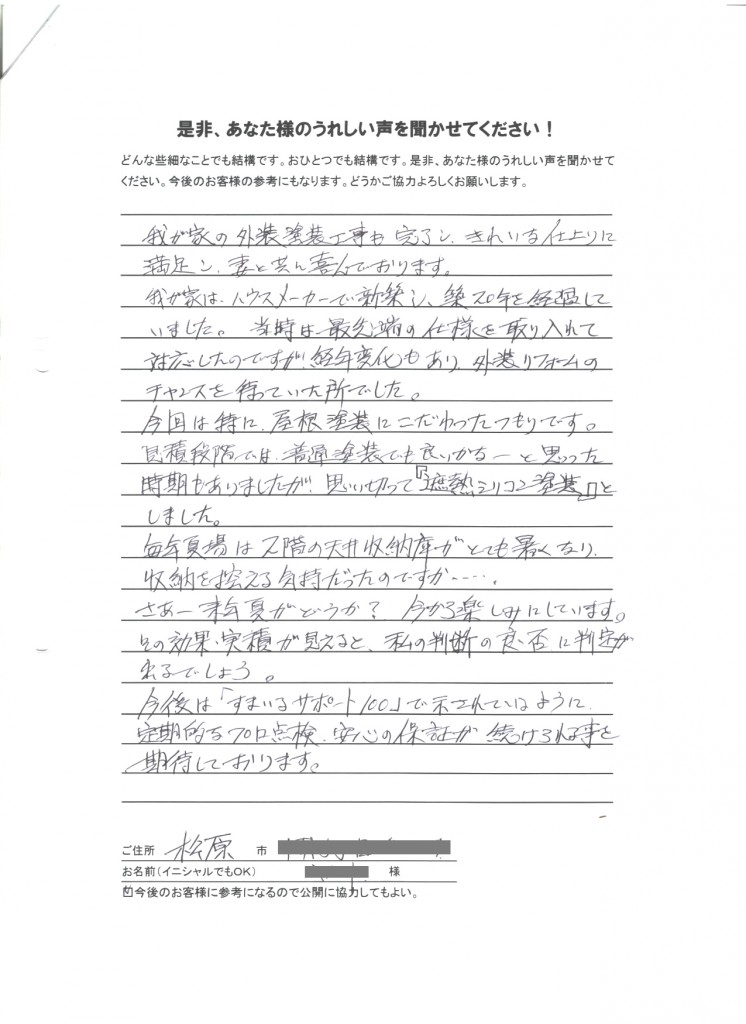 是非、あなた様のうれしい声を聞かせてください！
どんな些細なことでも結構です。おひとつでも結構です。是非、あなた様のうれしい声を聞かせて
ください。今後のお客様の参考にもなります。どうかご協力よろしくお願いします。
我が家の外装塗装工事も完了し、きれいな仕上りに
満足し、妻と共に喜んでおります。
我が家は、ハウスメーカーで新築し、築20年を経過して
いました。当時は最先端の仕様を取り入れて
対応したのですが、経年変化もあり、外装リフォームの
チャンスを待っていた所でした。
今回は特に、屋根塗装にこだわったつもりです。
見積段階では、普通塗装でも良いかなーと思った
時期もありましたが、思い切って『遮熱シリコン塗装』と
しました。
毎年夏場は2階の天井収納庫がとても暑くなり、
収納を控える気持だったのですが----。
さあー来年夏がどうか？今から楽しみにしています。
その効果・実積が見えると、私の判断の良、否に判定が
出るでしょう。
今後は「すまいるサポート100」で示されているように、
定期的なプロ点検、安心の保証が続けられる事を
期待しております。
ご住所 松原 市
お名前（イニシャルでもOK） 様
☑今後のお客様に参考になるので公開に協力してもよい。